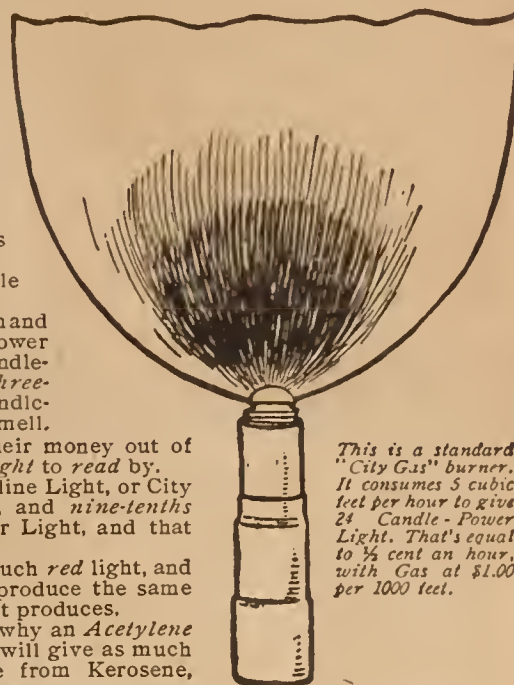 s
le
n and
ower
ndle-
hree-
ndle-
mell.
heir money out of
ght to read by.
line Light, or City
, and nine-tenths
r Light, and that
uch red light, and
produce the same
t produces.
why an Acetylene
will give as much
e from Kerosene,
This is a standard
"City Gas" burner.
It consumes 5 cubic
feet per hour to give
24 Candle-Power
Light. That's equal
to ½ cent an hour,
with Gas at $1.00
per 1000 feet.